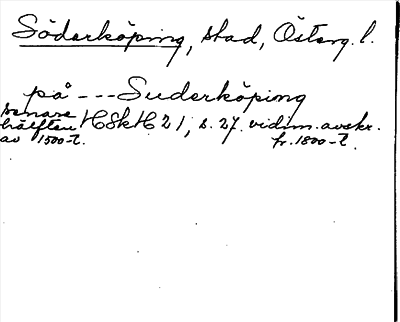 Söderköping, stad, Österg. l.
på --- Suderköping
senare hälften av 1500-t. HSkH 21, s. 27. vidim. avskr. fr. 1800-t.